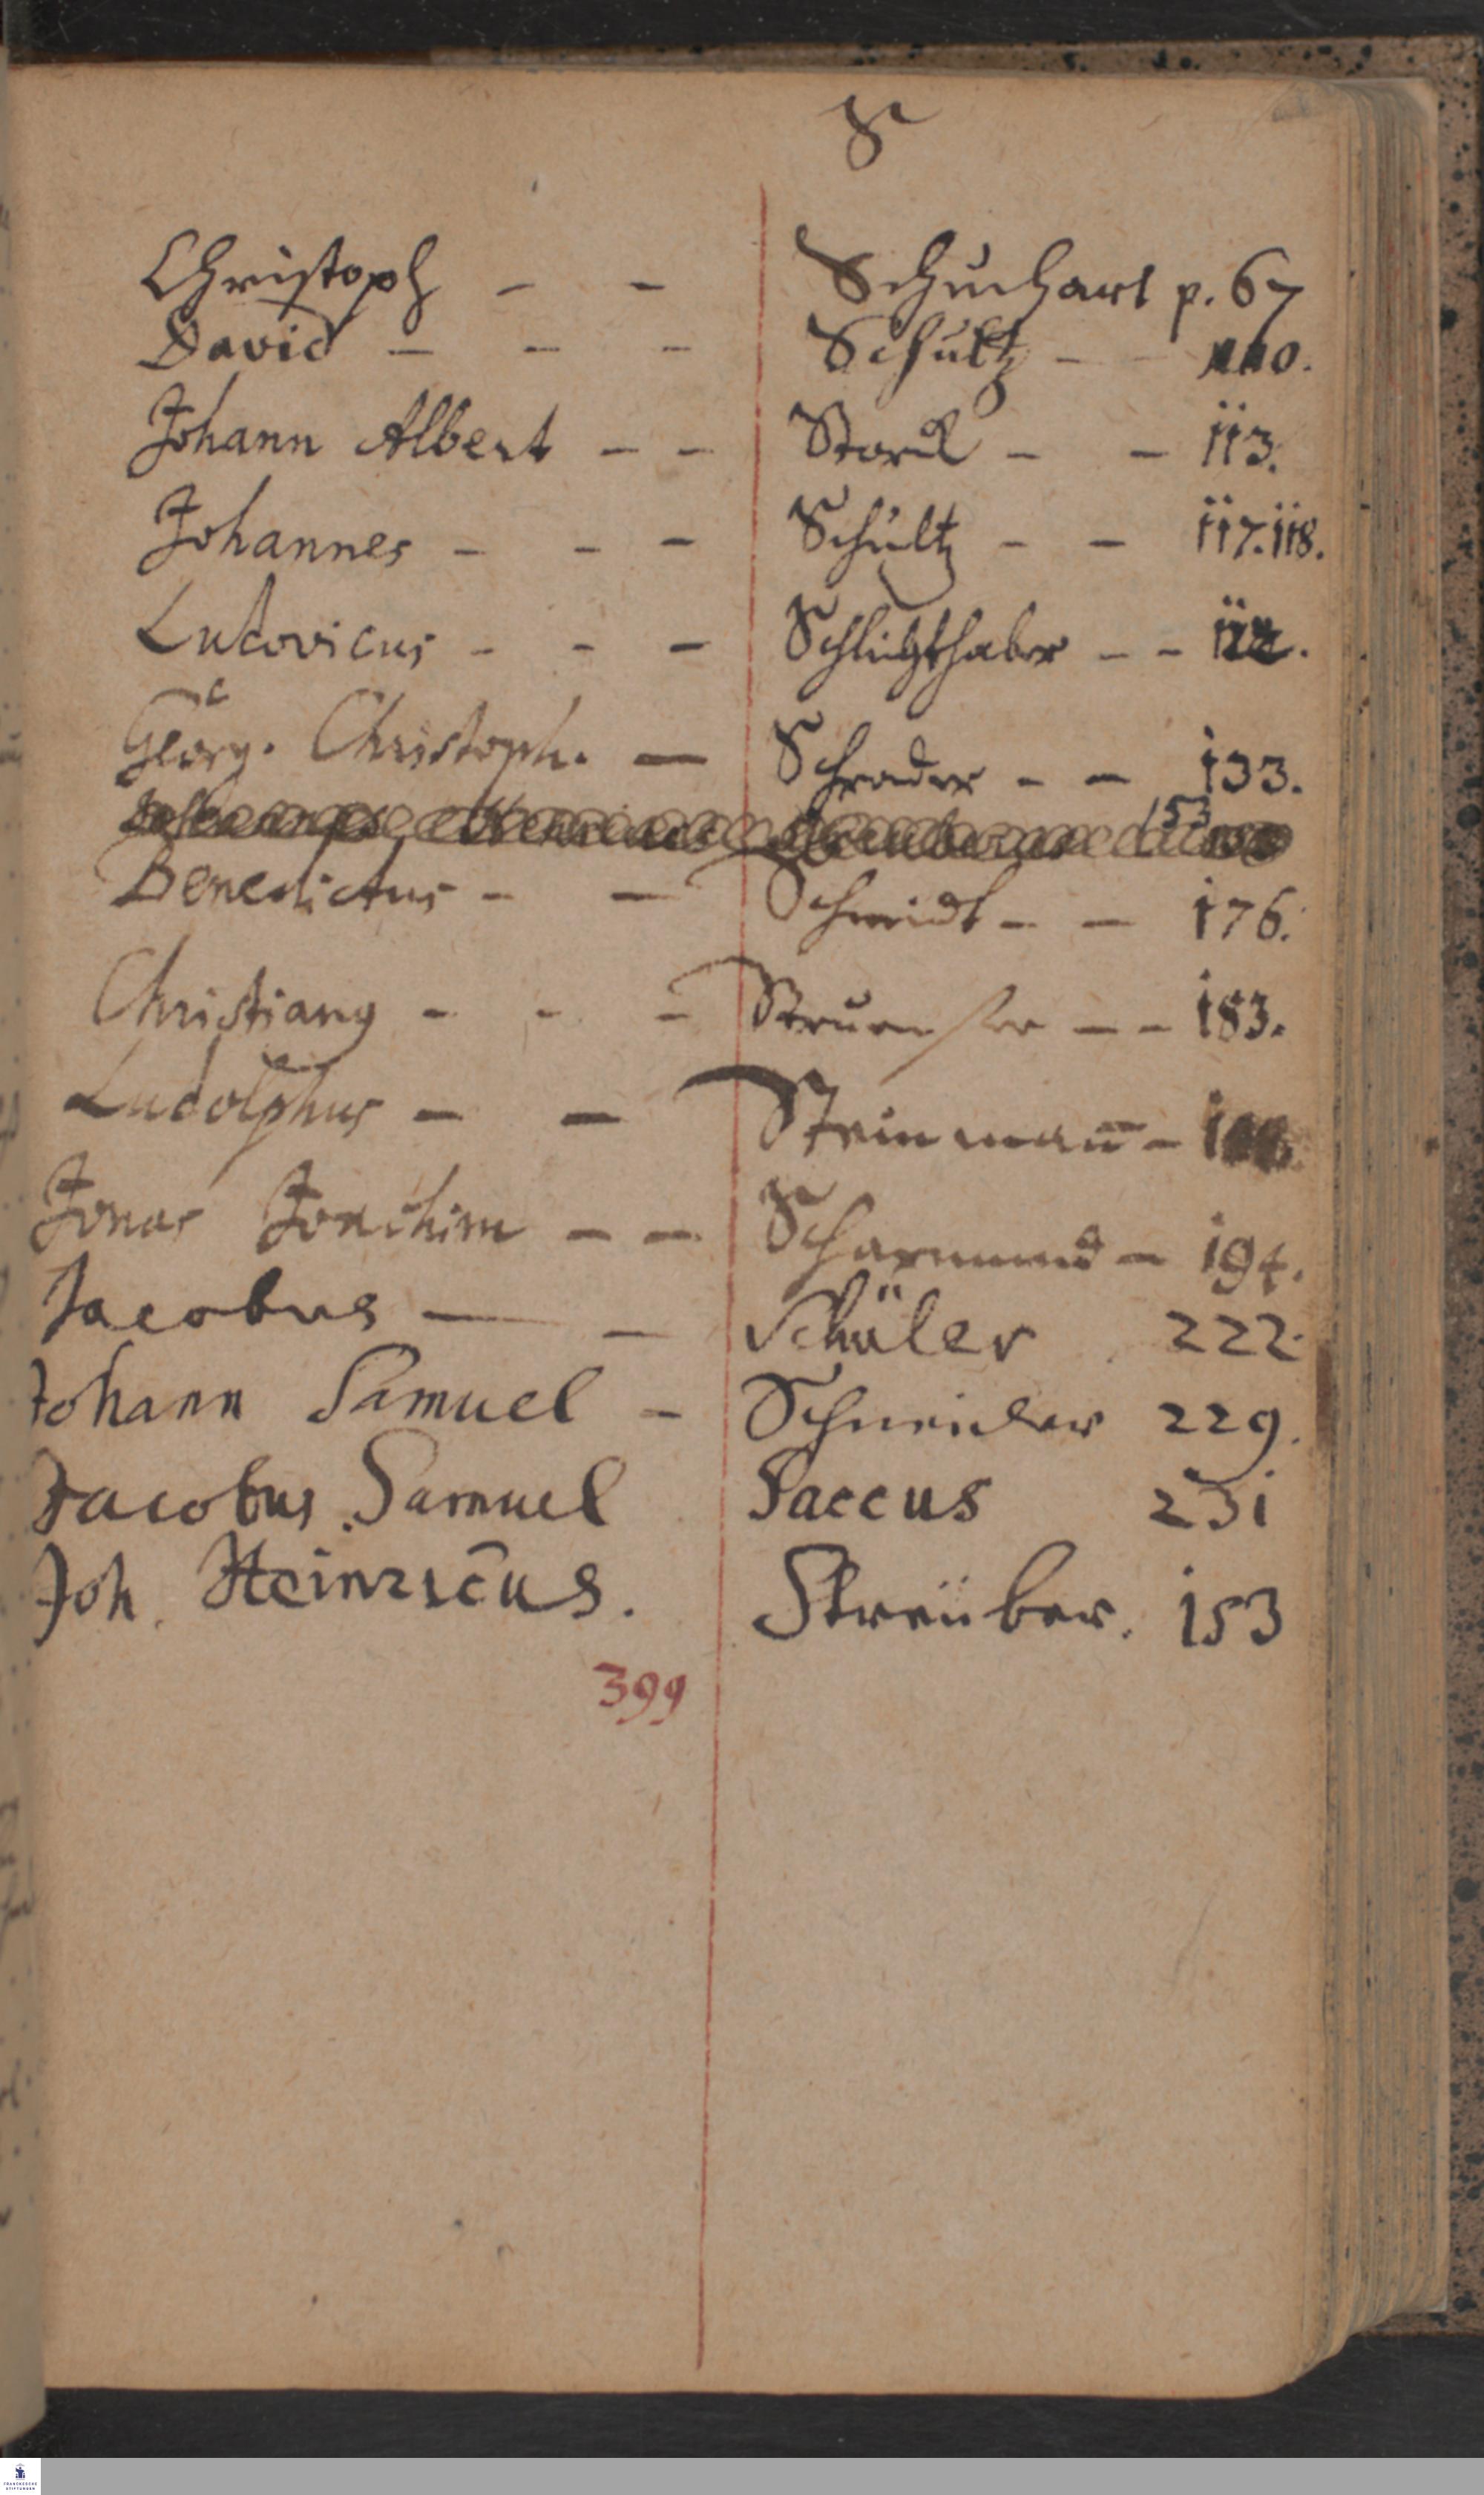 S
Christoph - - Schuchart p. 67
David - - - Schultz - - 110.
Johann Albert - - Storck - - 113.
Johannes - - - Schultz - - 117. 118.
Ludovicus - - - Schlichthaber - -
Georg. Christoph. - Schrader - - 133.
153
Benedictus - - Schmidt - - 176.
Christianus - - - Struensee - - 183.
Ludolphus - - Steinmañ -
Jonas Joachim - - Scharmund - 194.
Jacobus - - Schäler 222.
Johann Samuel - Schneider 229.
Jacobus Samuel Saccus 231
Joh. Heinricus. Streüber. 153
399
FRANCKESCHE STIFTUNGEN